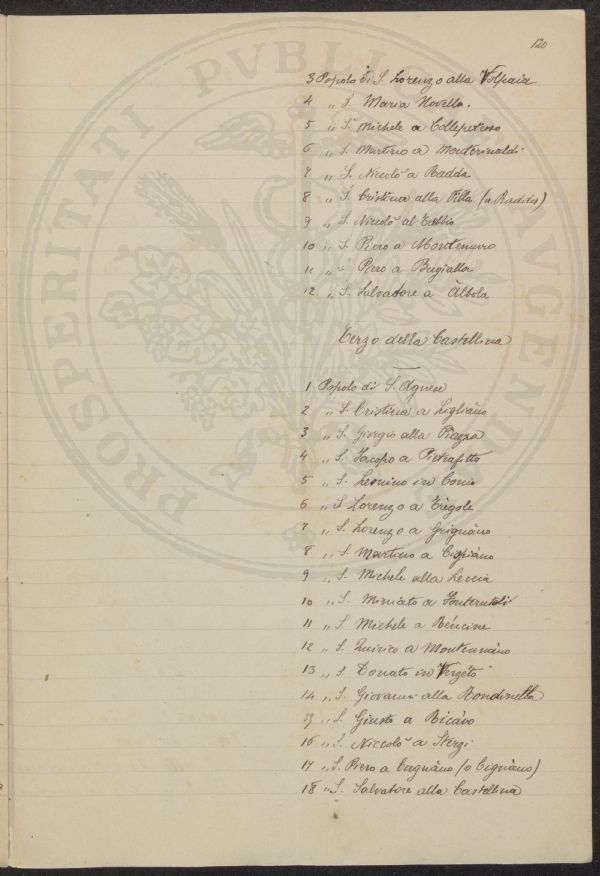 120
3 Popolo di S. Lorenzo alla Volpaia
4 „ S. Maria Novella.
5 „ S. Michele a Collepetroso
6 „ S. Martino a Monterinaldi
7 „ S. Niccolò a Radda
8 „ S. Cristina alla Villa (a Radda)
9 „ S. Niccolò al Trebbio
10 „ S. Piero a Montemuro
11 „ „ Piero a Bugialla
12 „ S. Salvatore a Àlbola
Terzo della Castellina
1 Popolo di S. Agnese
2 „ S. Cristina a Ligliàno
3 „ S. Giorgio alla Piazza
4 „ S. Jacopo a Pietrafitta
5 „ S. Leonino in Conio
6 „ S Lorenzo a Trègole
7 „ S. Lorenzo a Grignàno
8 „ S. Martino a Cispiàno
9 „ S. Michele alla Leccia
10 „ S. Miniato a Fonterutoli
11 „ S. Michele a Réncine
12 „ S. Quirico a Monternàno
13 „ S. Donato in Verzéto
14 „ S. Giovanni alla Rondinella
15 „ S. Giusto a Ricàvo
16 „ S. Niccolò a Sterzi
17 „ S. Piero a Cugnàno (o Cignàno)
18 „ S. Salvatore alla Castellina
PROSPERITATI PVBLICAE AVGENDAE